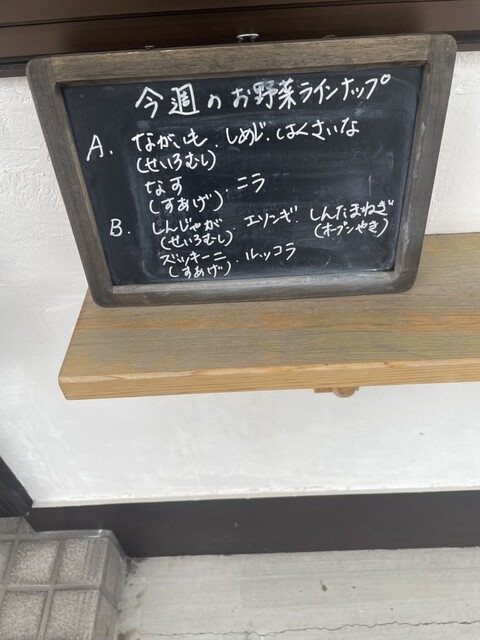 今週のお野菜ラインナップ
A. ながいも.しめじ.はくさいな
(せいろむし)
なす.ニラ
(すあげ)
B. しんじゃが.エリンギ.しんたまねぎ
(せいろむし) (オーブンやき)
ズッキーニ.ルッコラ
(すあげ)